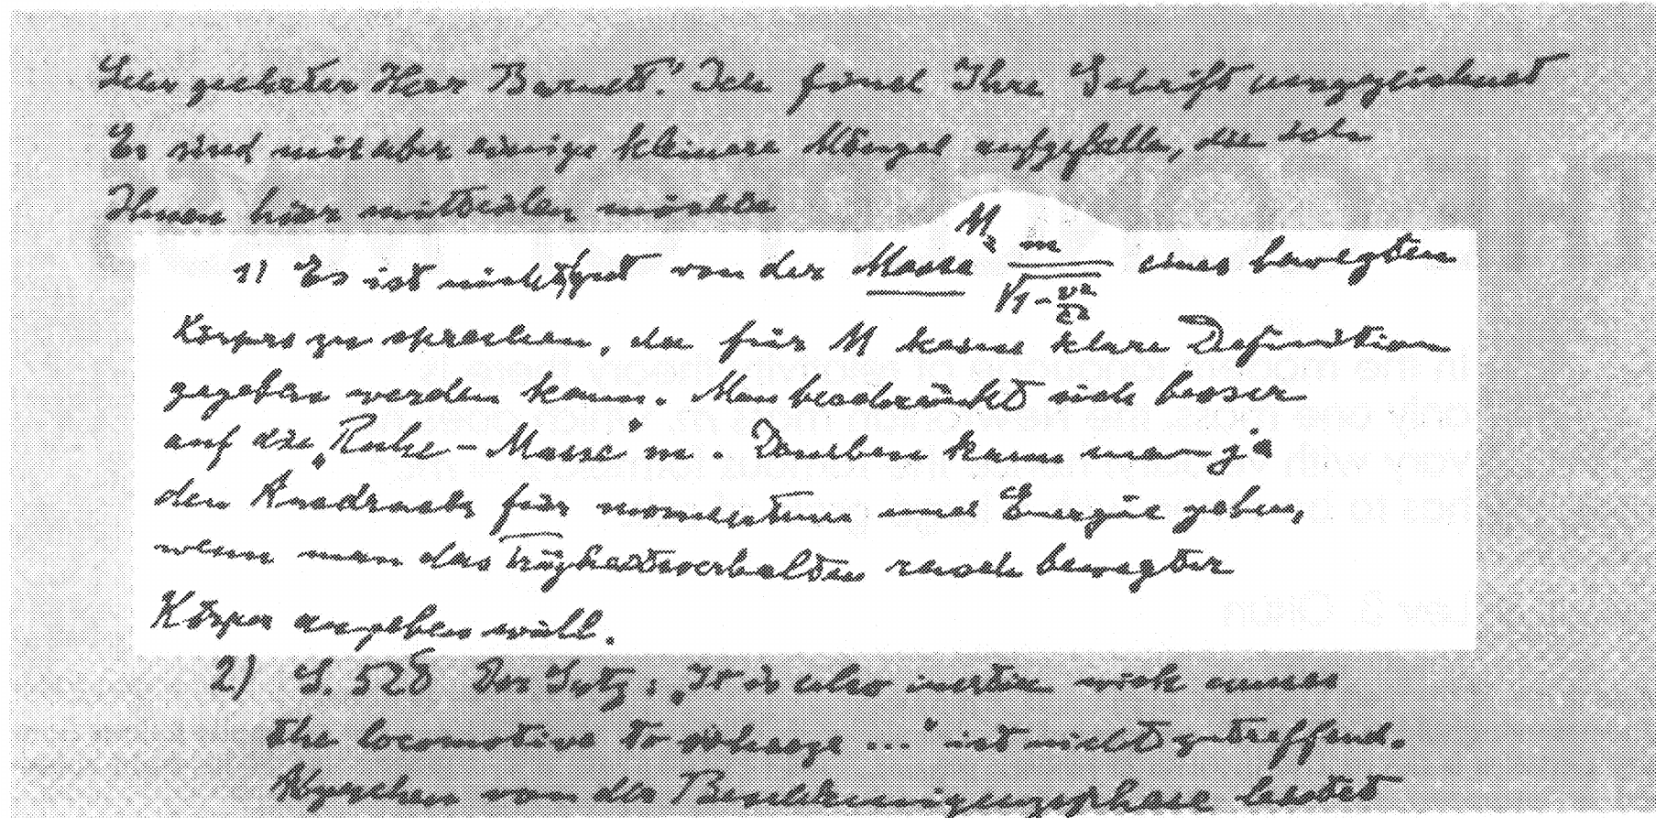 Sehr geehrter Herr Barnett! Ich find Ihre Schrift ausgezeichnet
Es sind mir aber einige kleinere Mängel aufgefalle, die ich
Ihnen hier mitteilen möchte
1) Es ist nicht gut von der Masse M = m / √(1 - v²/c²) eines bewegten
Körpers zu sprechen, da für M keine klare Definition
gegeben werden kann. Man beschränkt sich besser
auf die „Ruhe-Masse" m. Daneben kann man ja
den Ausdruck für momentum und Energie geben,
wenn man das Trägheitsverhalten rasch bewegter
Körper angeben will.
2) S. 528 Der Satz: „It is also inertia wich causes
the locomotive to ..." ist nicht zutreffend.
Abgesehen von der Beschleunigungsphase leistet